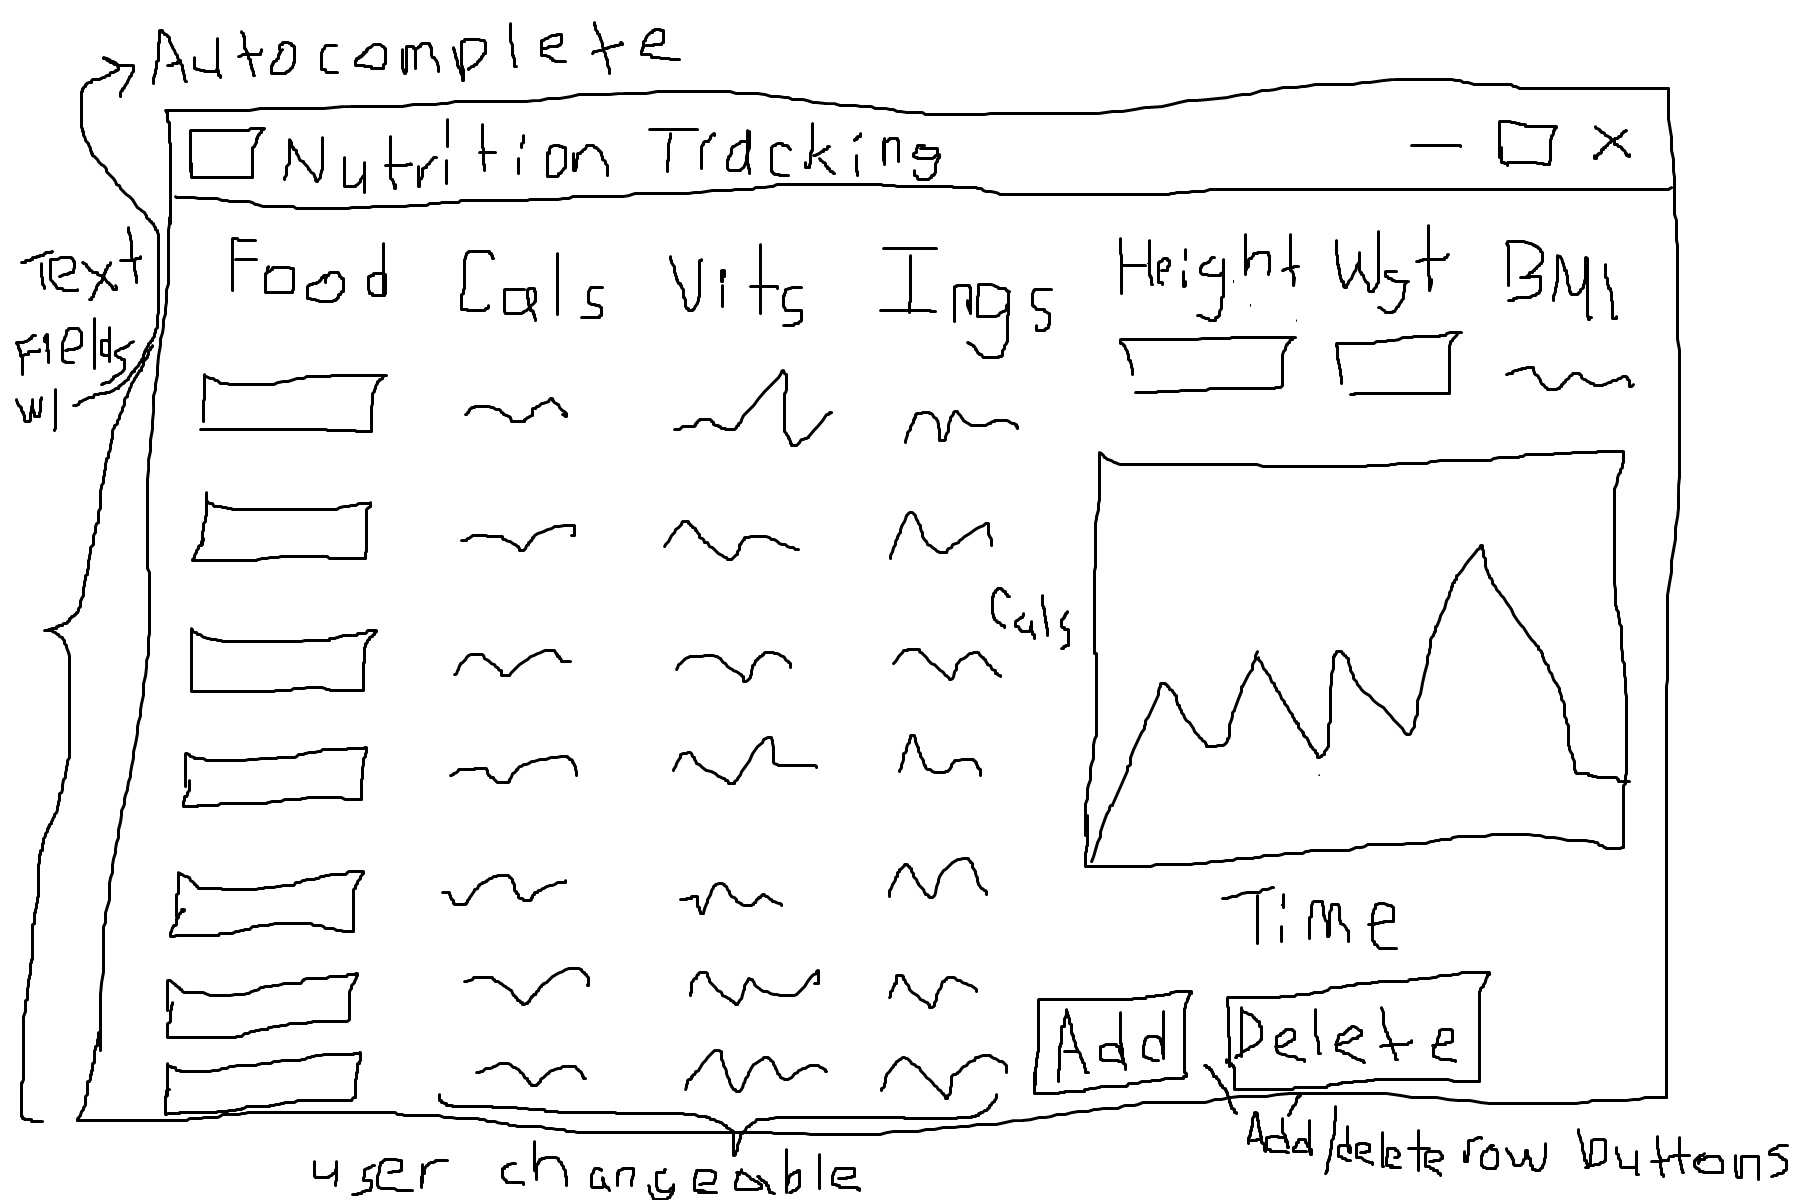 Autocomplete
Nutrition Tracking
Text
Fields
w/
Food Cals Vits Ings Height Wgt BMI
Cals
Time
Add Delete
Add/delete row buttons
user changeable